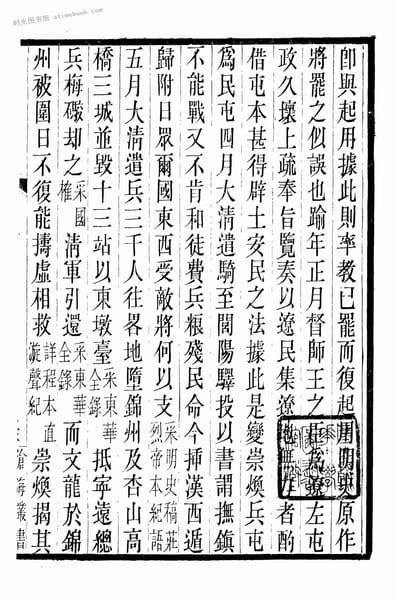 时光图书馆
卽與起用據此則率教已罷而復起明原作
將罷之似誤也踰年正月督師王之臣爲遼左屯
政久壞上疏奉旨覽奏以遼民集遼地無左者酌
借屯本甚得辟土安民之法據此是變崇煥兵屯
爲民屯四月大清遣騎至閭陽驛投以書謂撫鎮
不能戰又不肯和徒費兵粮殘民命今揷漢西遁
歸附日眾爾國東西受敵將何以支采明史稿莊烈帝本紀語
五月大清遣兵三千人往畧地墮錦州及杏山高
橋三城並毀十三站以東墩臺采東華全錄抵寧遠總
兵梅礟却之采國榷清軍引還采東華全錄而文龍於錦
州被圍日不復能擣虛相救詳程本直漩聲紀崇煥揭其
滄海叢書